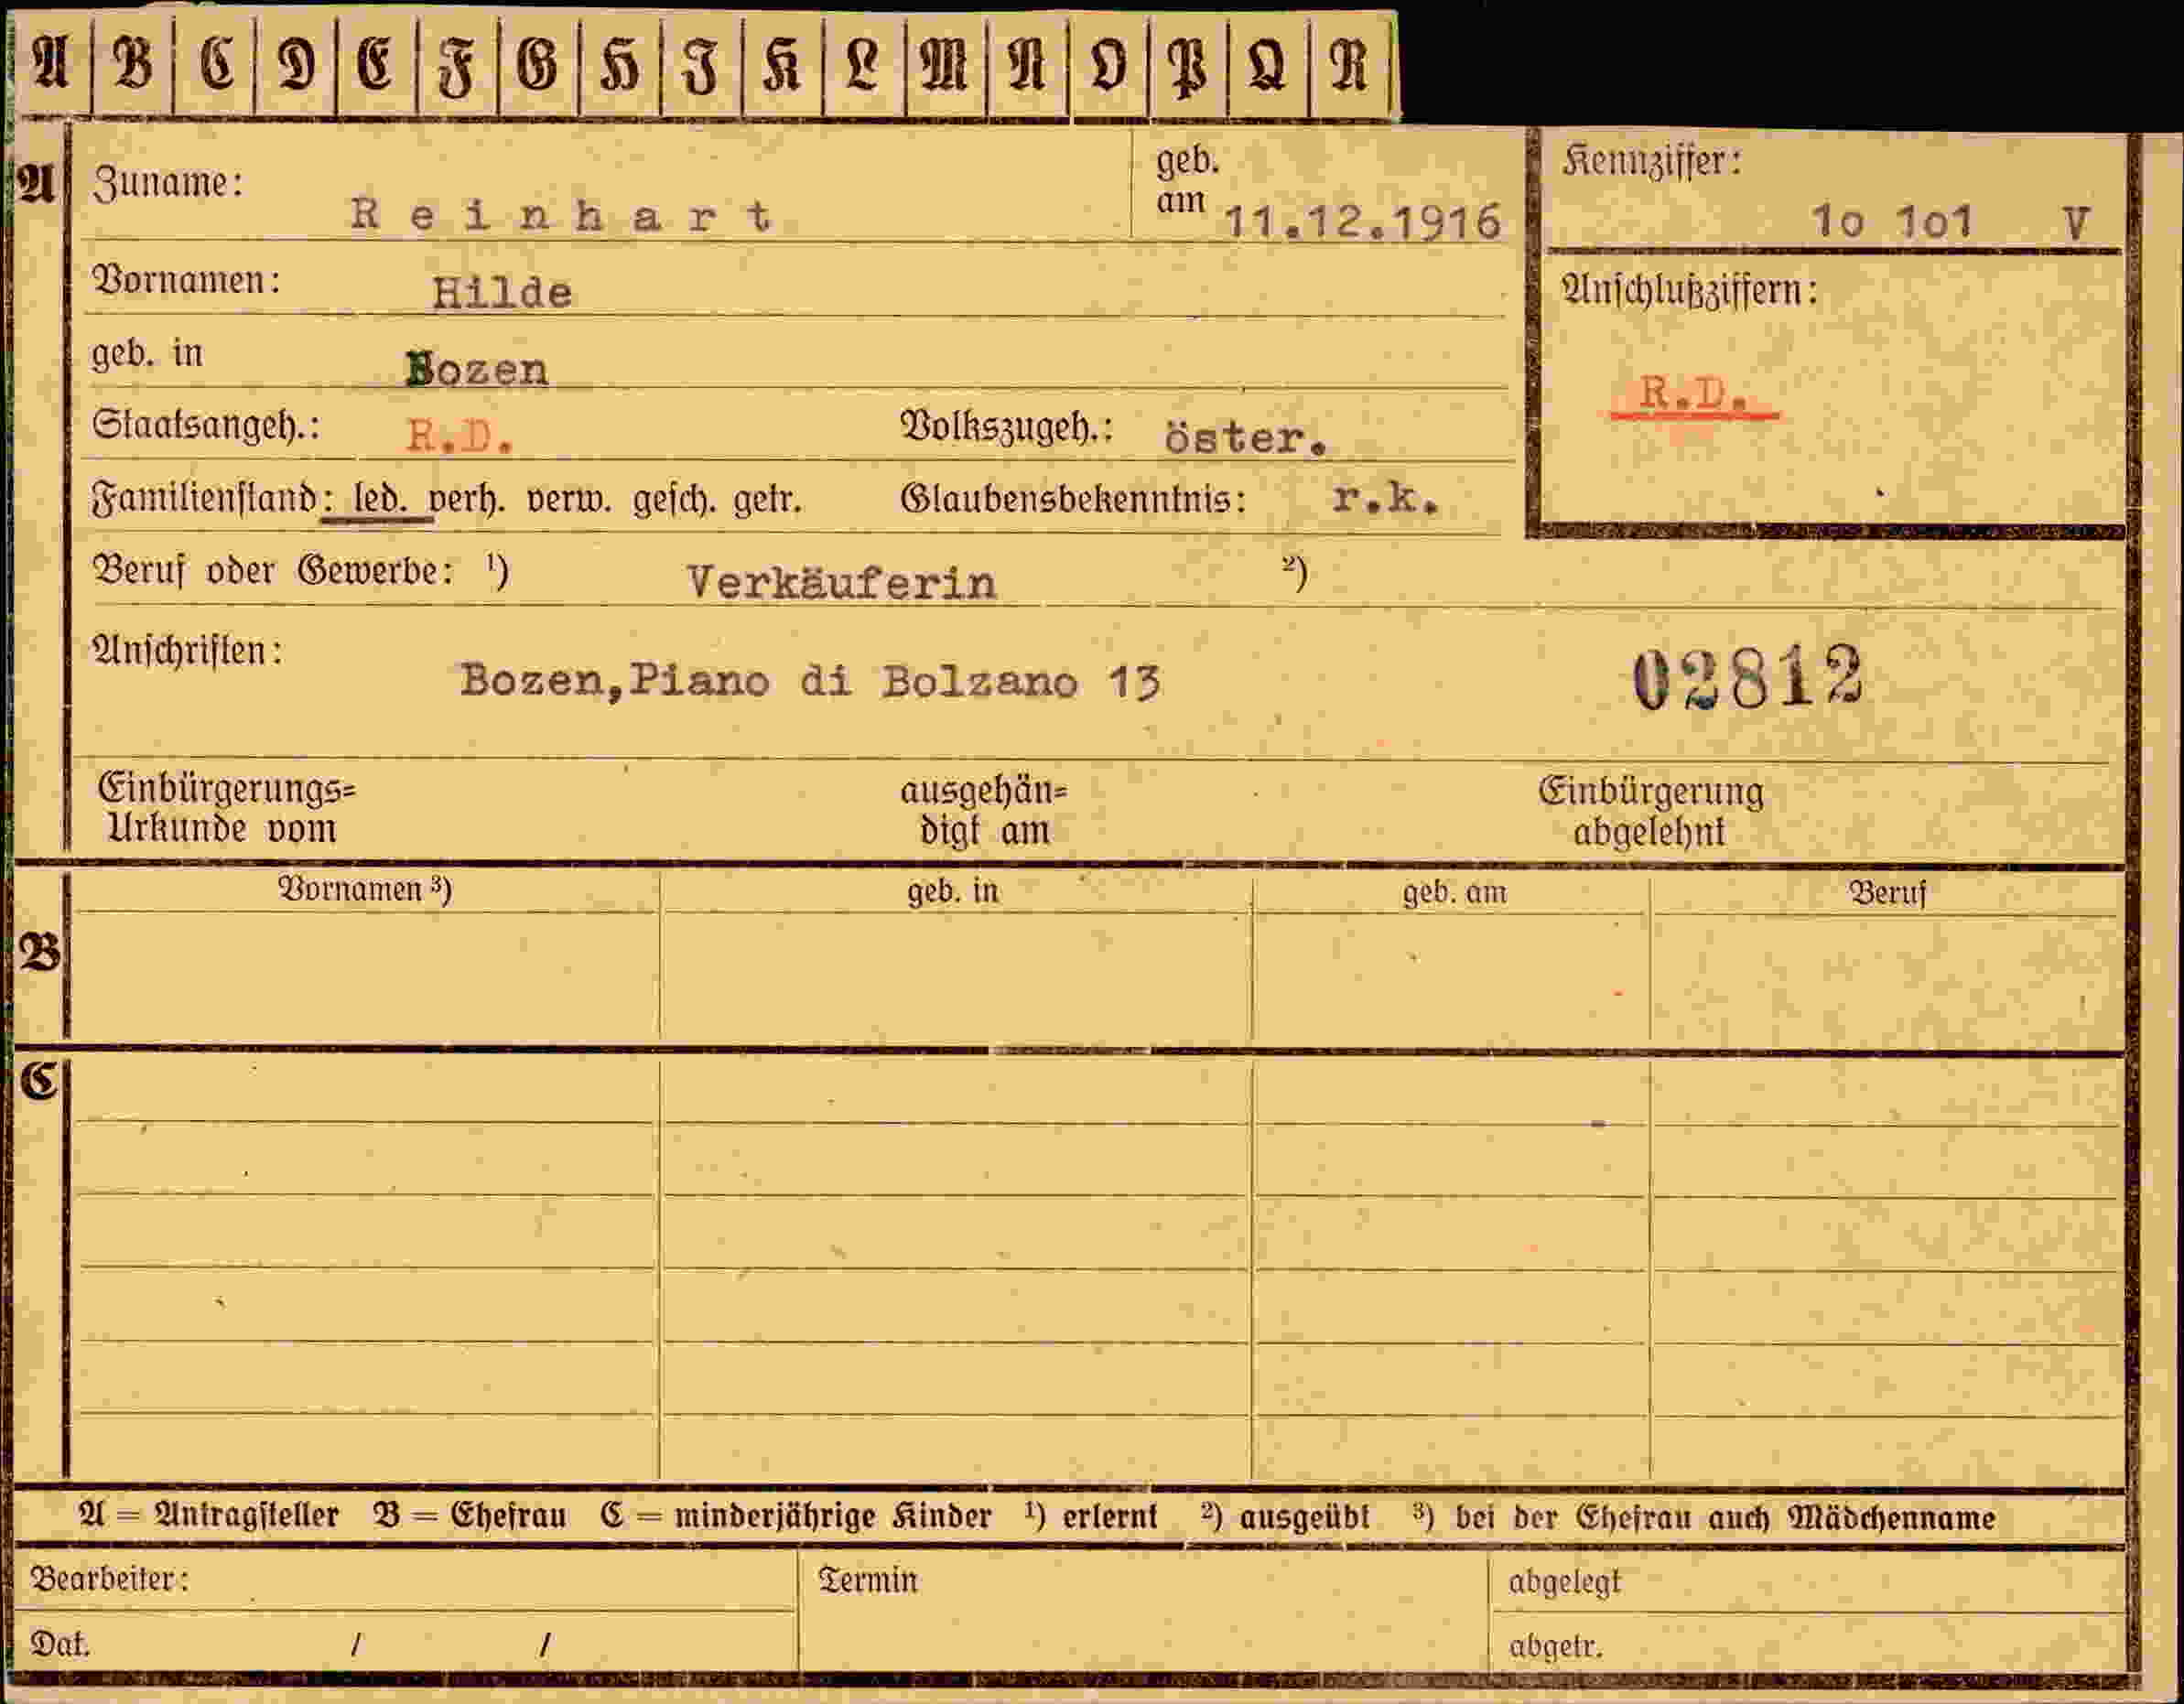 A B C D E F G H I K L M N O P Q R
A Zuname: Reinhart geb. am 11.12.1916 Kennziffer: 1o 1o1 V
Vornamen: Hilde Anschlußziffern:
geb. in Bozen
R.D.
Staatsangeh.: R.D. Volkszugeh.: öster.
Familienstand: led. verh. verw. gesch. getr. Glaubensbekenntnis: r.k.
Beruf oder Gewerbe: ¹) Verkäuferin ²)
Anschriften: Bozen,Piano di Bolzano 13 02812
Einbürgerungs= ausgehän= Einbürgerung
Urkunde vom digt am abgelehnt
Vornamen ³) geb. in geb. am Beruf
B
C
A = Antragsteller B = Ehefrau C = minderjährige Kinder ¹) erlernt ²) ausgeübt ³) bei der Ehefrau auch Mädchenname
Bearbeiter: Termin abgelegt
Dat. / / abgetr.